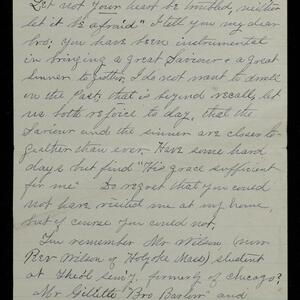 Let not your heart be troubled, neither
let it be afraid" I tell you my dear
bro; you have been instrumental
in bringing a great Saviour & a great
sinner together, I do not want to dwell
on the Past, that is beyond recall, let
us both rejoice to day, that the
Saviour and the sinner are closer to-
gether than ever. Have some hard
days but find "His grace sufficient
for me" Do regret that you could
not have visited me at my home,
but of course you could not.
You remember Mr Wilson, (now
Rev Wilson of Holyoke Mass) student
at Theol Sem'y, formerly of Chicago?
Mr Gillette "Bro Barlow" and